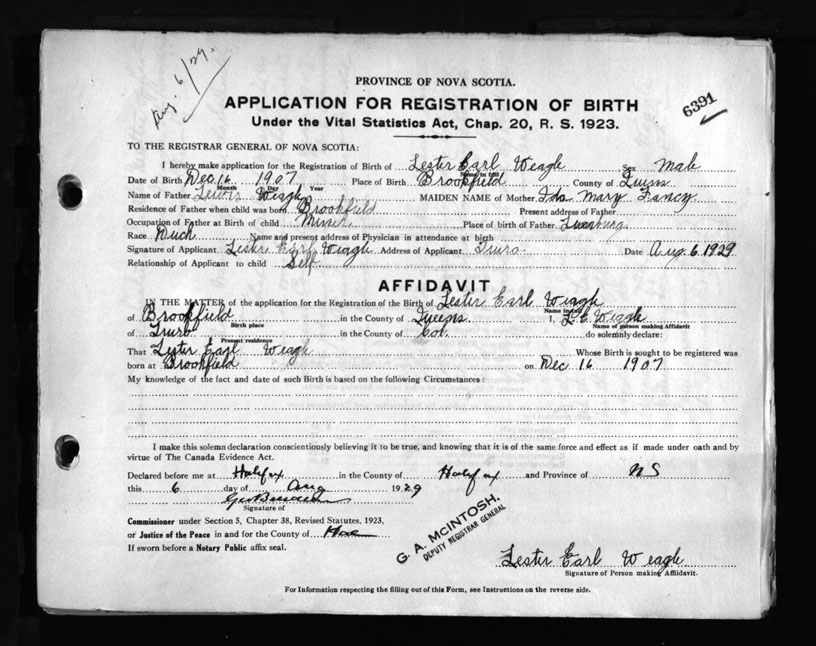 Aug. 6/29.
PROVINCE OF NOVA SCOTIA.
6391
APPLICATION FOR REGISTRATION OF BIRTH
Under the Vital Statistics Act, Chap. 20, R. S. 1923.
TO THE REGISTRAR GENERAL OF NOVA SCOTIA:
I hereby make application for the Registration of Birth of Lester Earl Weagle Sex Male
Name in full
Date of Birth Dec 16 1907 Place of Birth Brookfield County of Queens
Month Day Year
Name of Father Lewis Weagle MAIDEN NAME of Mother Ida Mary Fancy
Residence of Father when child was born Brookfield Present address of Father
Occupation of Father at Birth of child Place of birth of Father Lunenburg
Race Duch Name and present address of Physician in attendance at birth
Signature of Applicant Lester Earl Weagle Address of Applicant Truro Date Aug 6 1929
Relationship of Applicant to child Self
AFFIDAVIT
IN THE MATTER of the application for the Registration of the Birth of Lester Earl Weagle
Name in full
of Brookfield in the County of Queens I, L E Weagle
Birth place Name of person making Affidavit
of Truro in the County of Col. do solemnly declare:
Present residence
That Lester Earl Weagle Whose Birth is sought to be registered was
born at Brookfield on Dec 16 1907
My knowledge of the fact and date of such Birth is based on the following Circumstances:
I make this solemn declaration conscientiously believing it to be true, and knowing that it is of the same force and effect as if made under oath and by
virtue of The Canada Evidence Act.
Declared before me at Halifax in the County of Halifax and Province of N S
this 6 day of Aug 1929
Signature of
Commissioner under Section 5, Chapter 38, Revised Statutes, 1923,
or Justice of the Peace in and for the County of
If sworn before a Notary Public affix seal.
G. A. McINTOSH,
DEPUTY REGISTRAR GENERAL
Lester Earl Weagle
Signature of Person making Affidavit.
For Information respecting the filling out of this Form, see Instructions on the reverse side.